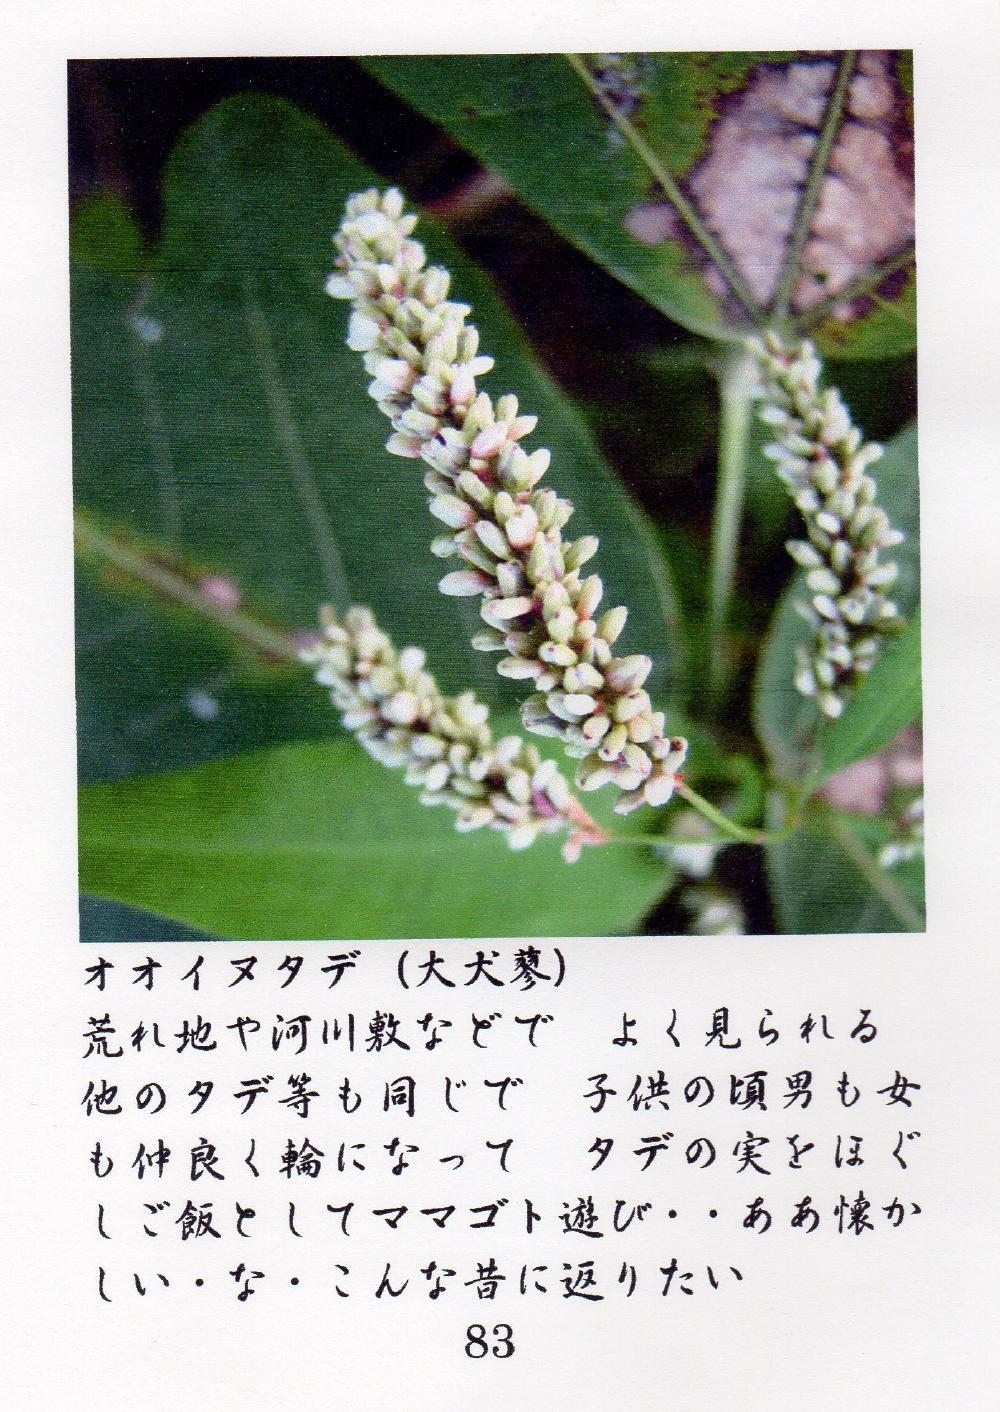 オオイヌタデ（大犬蓼）
荒れ地や河川敷などで　よく見られる
他のタデ等も同じで　子供の頃男も女
も仲良く輪になって　タデの実をほぐ
しご飯としてママゴト遊び・・ああ懐か
しい・な・こんな昔に返りたい
83